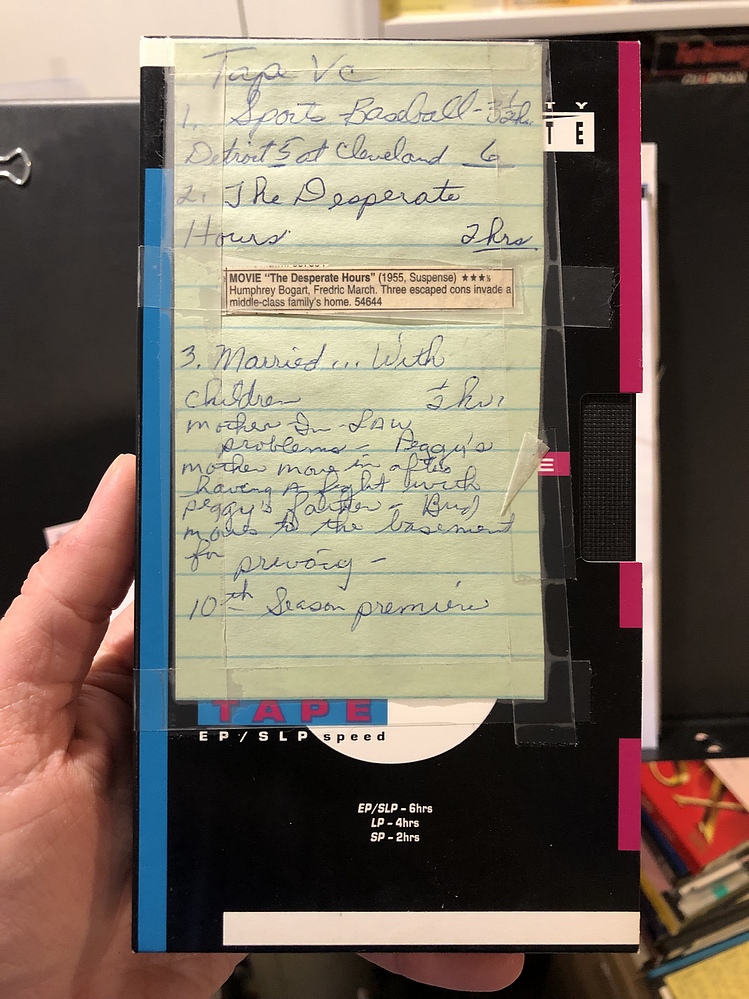 Tape Vc
TY
1. Sports Baseball - 3 1/2 h.
TE
Detroit 5 at Cleveland 6
2. The Desperate
Hours 2 hrs
MOVIE "The Desperate Hours" (1955, Suspense) ★★★½
Humphrey Bogart, Fredric March. Three escaped cons invade a
middle-class family's home. 54644
3. Married... With
children 1/2 hr.
mother In-LAW
problems - Peggy's
mother move in after
having a fight with
peggy's father - Bud
moves to the basement
for
privacy -
10th Season premiere
E
TAPE
EP/SLP speed
EP/SLP – 6hrs
LP – 4hrs
SP – 2hrs